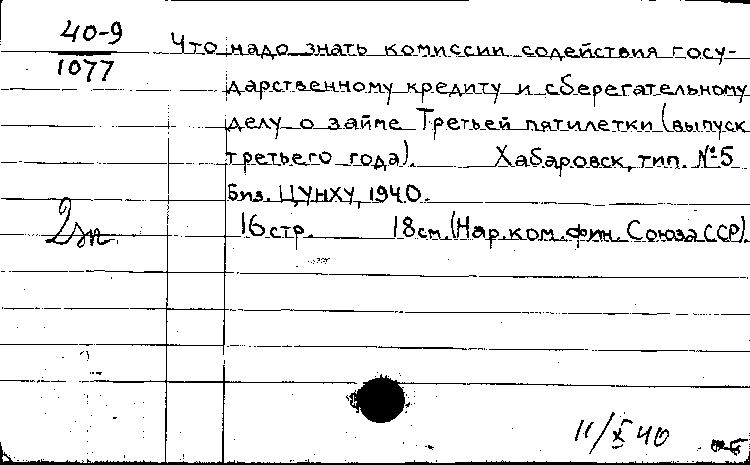 40-9
1077
Что надо знать комиссии содействия госу-
дарственному кредиту и сберегательному
делу о займе Третьей пятилетки (выпуск
третьего года). Хабаровск, тип. №5
Биз. ЦУНХУ, 1940.
16 стр. 18 см. (Нар. ком. фин. Союза ССР).
2 эк.
11/X 40